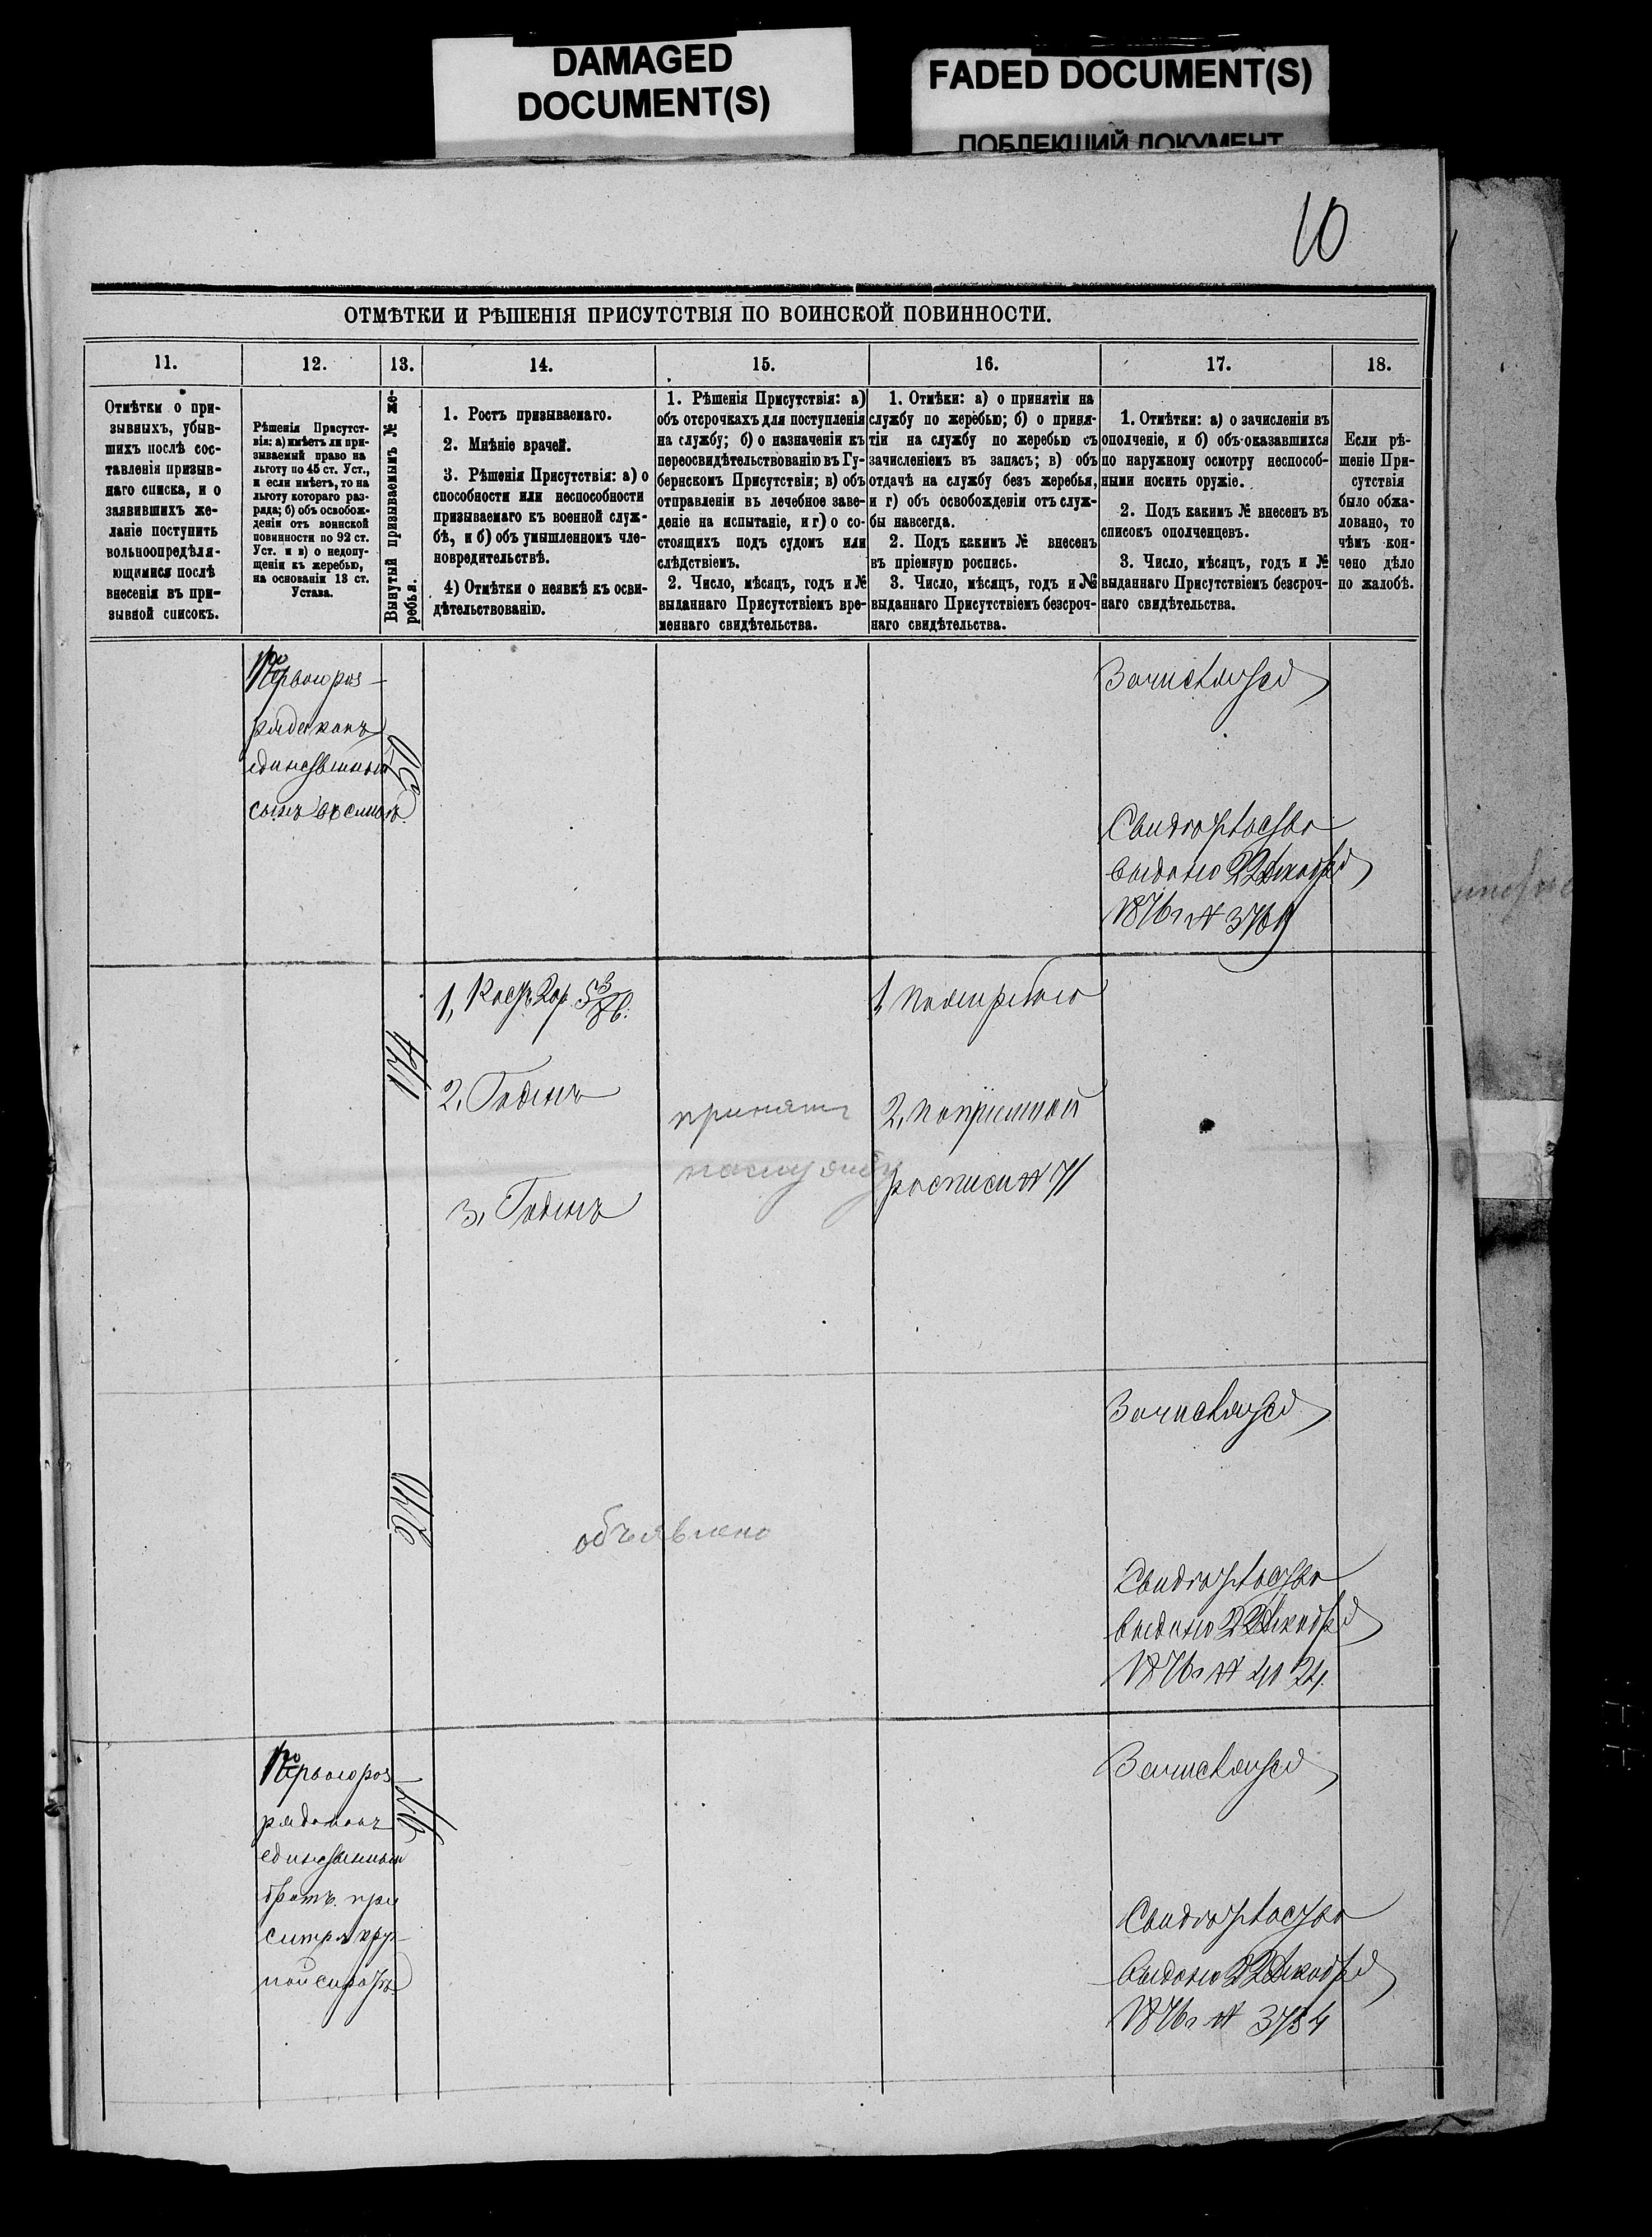 DAMAGED
DOCUMENT(S)
FADED DOCUMENT(S)
ПОБЛЕКШИЙ ДОКУМЕНТ
10
ОТМѢТКИ И РѢШЕНІЯ ПРИСУТСТВІЯ ПО ВОИНСКОЙ ПОВИННОСТИ.
11.
Отмѣтки о при-
зывныхъ, убыв-
шихъ послѣ сос-
тавленія призыв-
наго списка, и о
заявившихъ же-
ланіе поступить
вольноопредѣля-
ющимися послѣ
внесенія въ при-
зывной списокъ.
12.
Рѣшенія Присутст-
вія: а) имѣетъ ли при-
зываемый право на
льготу по 45 ст. Уст.,
и если имѣетъ, то на
льготу котораго раз-
ряда; б) объ освобож-
деніи отъ воинской
повинности по 92 ст.
Уст. и в) о недопу-
щеніи къ жеребью,
на основаніи 13 ст.
Устава.
13.
Вынутый призываемымъ № же-
ребья.
14.
1. Ростъ призываемаго.
2. Мнѣніе врачей.
3. Рѣшенія Присутствія: а) о
способности или неспособности
призываемаго къ военной служ-
бѣ, и б) объ умышленномъ чле-
новредительствѣ.
4) Отмѣтки о неявкѣ къ осви-
дѣтельствованію.
15.
1. Рѣшенія Присутствія: а)
объ отсрочкахъ для поступленія
на службу; б) о назначеніи къ
переосвидѣтельствованію въ Гу-
бернскомъ Присутствіи; в) объ
отправленіи въ лечебное заве-
деніе на испытаніе, и г) о со-
стоящихъ подъ судомъ или
слѣдствіемъ.
2. Число, мѣсяцъ, годъ и №
выданнаго Присутствіемъ вре-
меннаго свидѣтельства.
16.
1. Отмѣки: а) о принятіи на
службу по жеребью; б) о приня-
тіи на службу по жеребью съ
зачисленіемъ въ запасъ; в) объ
отдачѣ на службу безъ жеребья,
и г) объ освобожденіи отъ служ-
бы навсегда.
2. Подъ какимъ № внесенъ
въ пріемную роспись.
3. Число, мѣсяцъ, годъ и №
выданнаго Присутствіемъ безсроч-
наго свидѣтельства.
17.
1. Отмѣтки: а) о зачисленіи въ
ополченіе, и б) объ оказавшихся
по наружному осмотру неспособ-
ными носить оружіе.
2. Подъ какимъ № внесенъ въ
списокъ ополченцевъ.
3. Число, мѣсяцъ, годъ и №
выданнаго Присутствіемъ безсроч-
наго свидѣтельства.
18.
Если рѣ-
шеніе При-
сутствія
было обжа-
ловано, то
чѣмъ кон-
чено дѣло
по жалобѣ.
Перваго раз-
ряда какъ
единственный
сынъ въ семьѣ
Зачисляется
Свидѣтельство
выдано 22 декабря
1876 г №
174
1,
2, Годенъ
3, Годенъ
принятъ
на службу
1, По жеребью
2, по пріемной
росписи № 71
объявлено
Зачисляется
Свидѣтельство
выдано 22 декабря
1876 г № 4124
Перваго раз-
ряда какъ
единственный
братъ при
сестрѣ круг-
лой сиротѣ
Зачисляется
Свидѣтельство
выдано 22 декабря
1876 г № 3784